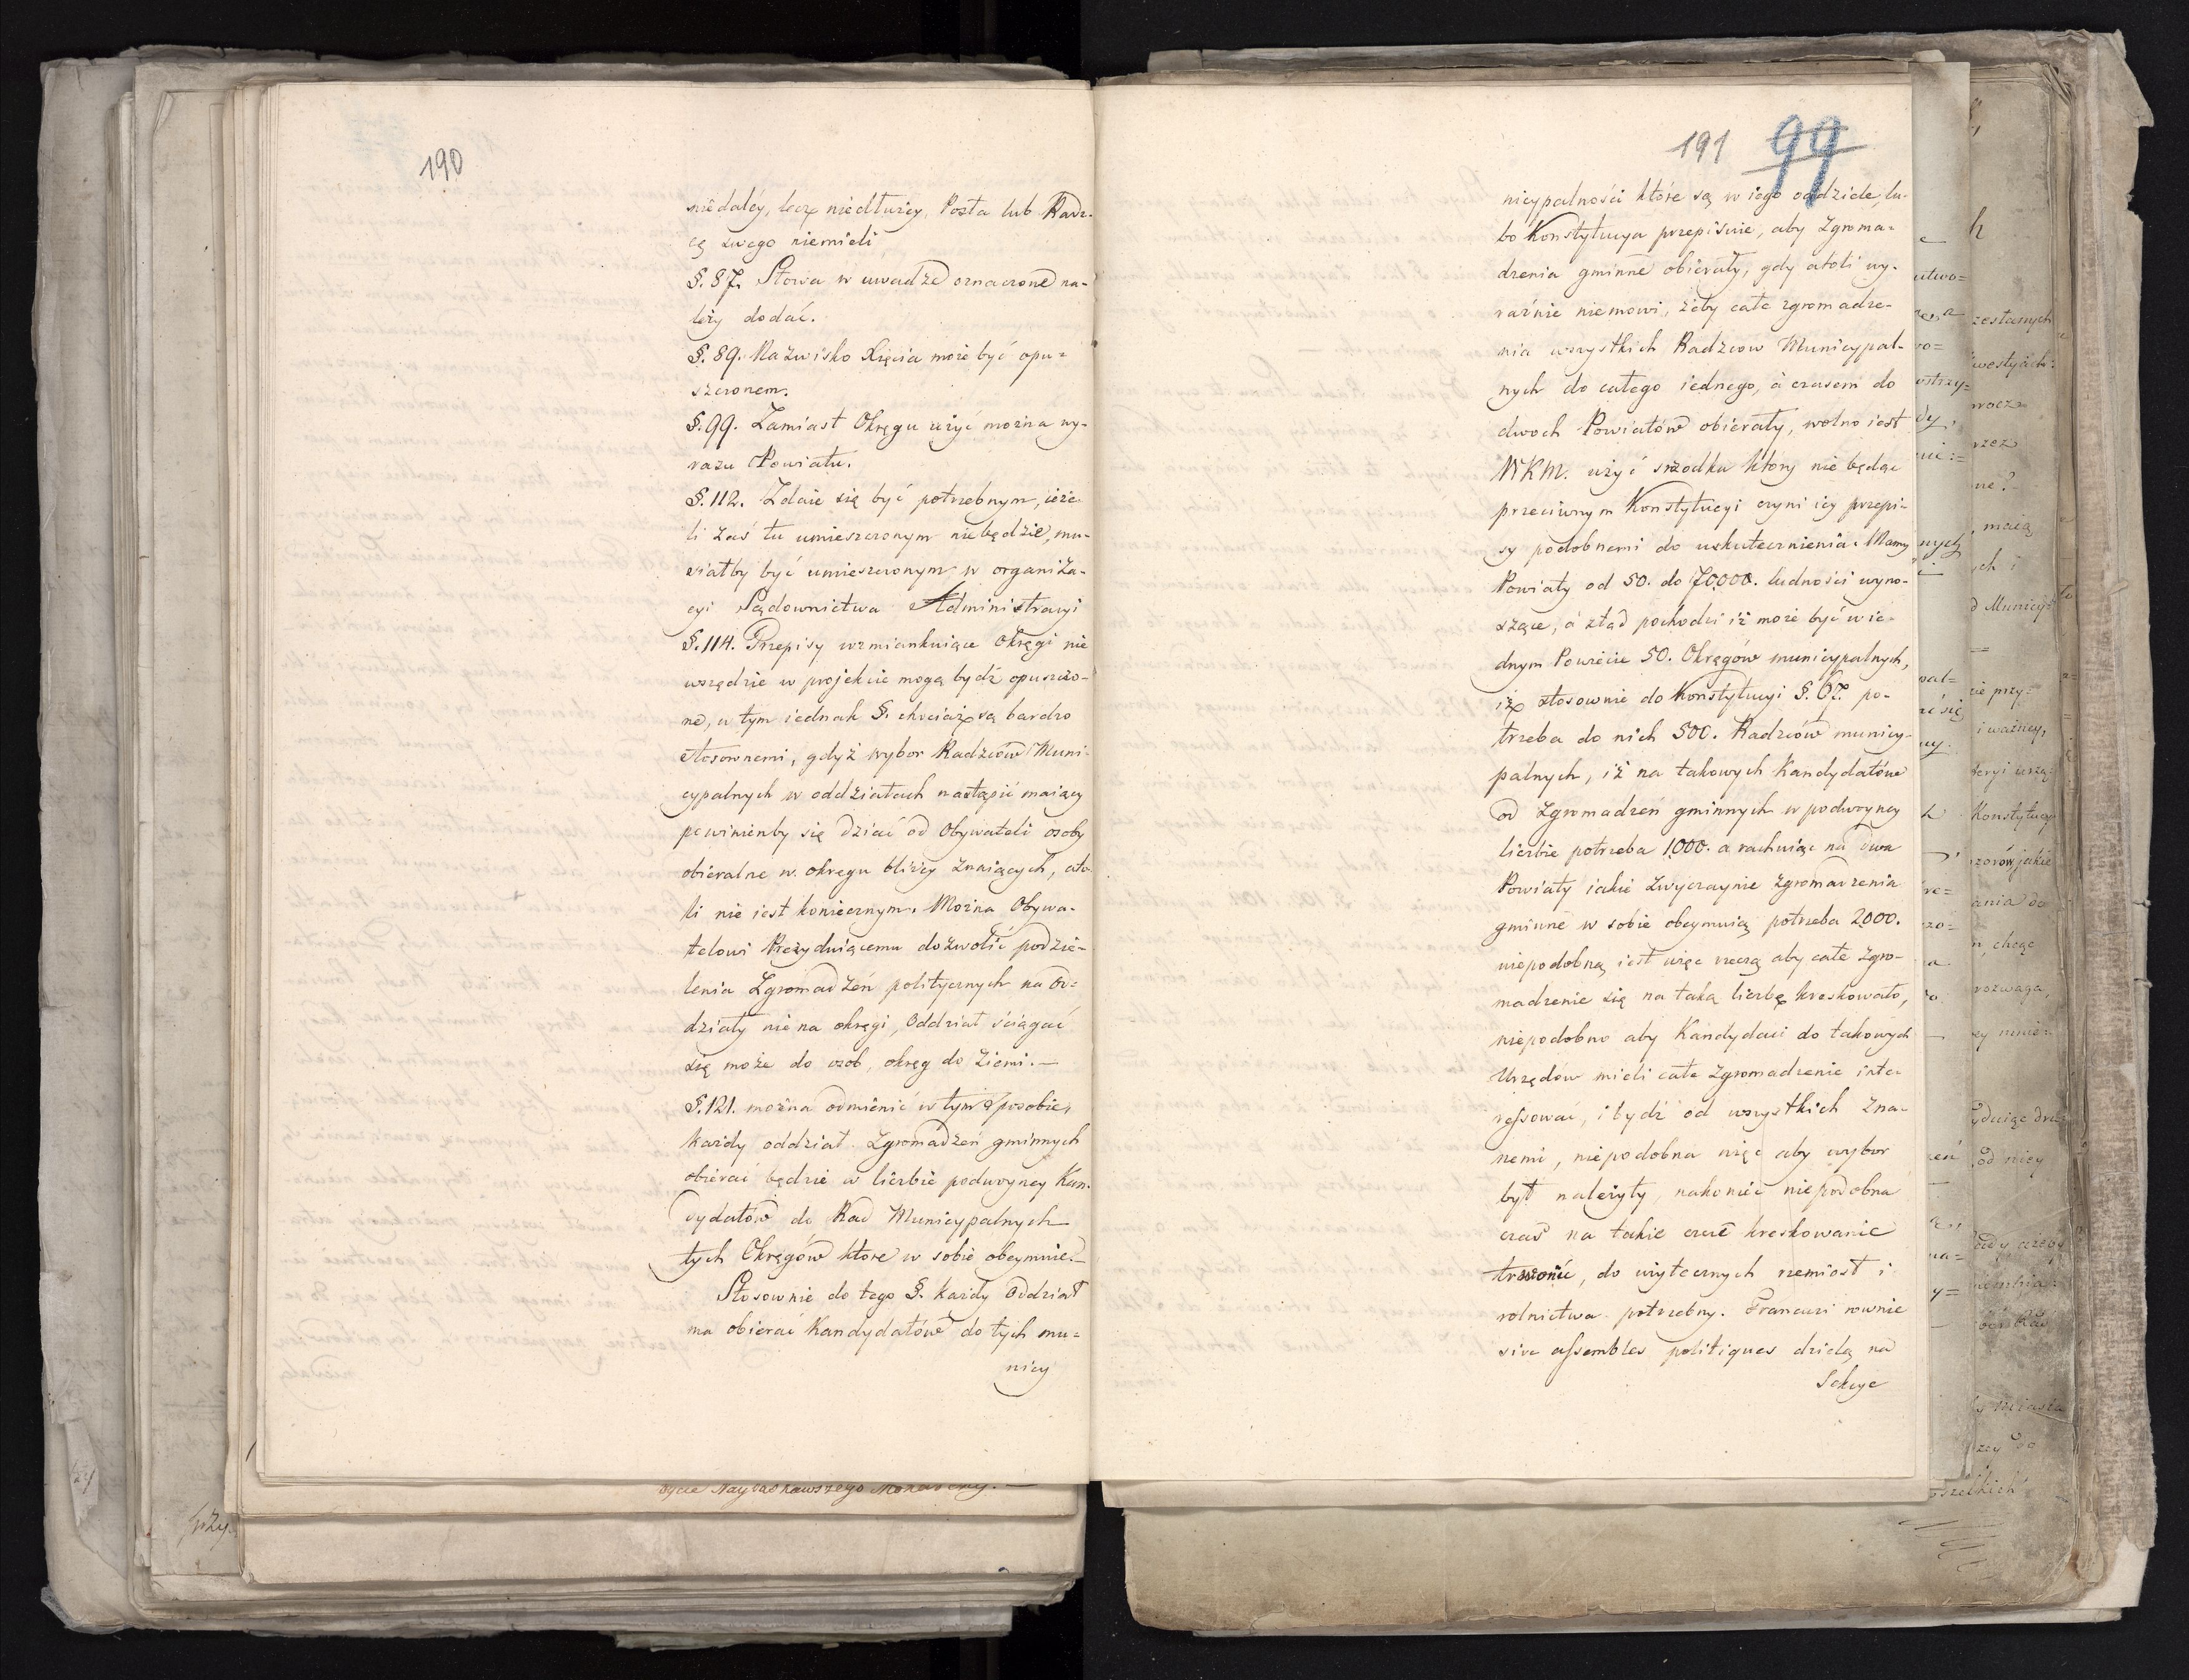 190
niedaléy, lecz niedłużey, Posła lub Radz-
cę swego niemieli
§. 87. Słowa w uwadze oznaczone na-
leży dodać.
§. 89. Nazwisko Xięcia może być opu-
szczonem.
§. 99. Zamiast Okręgu użyć można wy-
razu Powiatu.
§. 112. Zdaie się być potrzebnym, ieże-
li zaś tu umieszczonym niebędzie, mu-
siałby być umieszczonym w organiza-
cyi Sądownictwa Administracyi
§. 114. Przepisy wzmiankuiące Okręgi nie
wszędzie w projekcie mogą bydź opuszczo-
ne, w tym iednak §. chociaż są bardzo
stosownemi, gdyż wybor Radzców Muni-
cypalnych w oddziałach nastąpić maiący
powinienby się dziać od Obywateli osoby
obieralne w okręgu bliżey znaiących, ato-
li nie iest koniecznym. Można Obywa-
telowi Prezyduiącemu dozwolić podzie-
lenia Zgromadzeń politycznych na od-
działy nie na okręgi, Oddział ściągać
się może do osob, okręg do Ziemi.—
§. 121. można odmienić w tym sposobie,
każdy oddział Zgromadzeń gminnych
obierać będzie w liczbie podwoyney Kan-
dydatów do Rad Municypalnych
tych Okręgów które w sobie obeymuie.—
Stosownie do tego §. każdy Oddział
ma obierać Kandydatów do tych mu-
nicy
191 99
nicypalności które są w iego oddziele, lu-
bo Konstytucya przepisuie, aby Zgroma-
dzenia gminne obierały, gdy atoli wy-
raźnie niemowi, żeby całe zgromadze-
nia wszystkich Radzcow Municypal-
nych do całego iednego, à czasem do
dwoch Powiatów obierały, wolno iest
WKM. użyć srzodka ktory nie będąc
przeciwnym Konstytucyi czyni iey przepi-
sy podobnemi do uskutecznienia. Mamy
Powiaty od 50. do 70,000. ludności wyno-
szące, à ztąd pochodzi iż może być w ie-
dnym Powiecie 50. Okręgów municypalnych,
iż stosownie do Konstytucyi §. 67. po-
trzeba do nich 500. Radzców municy-
palnych, iż na takowych Kandydatów
od Zgromadzeń gminnych w podwoyney
liczbie potrzeba 1,000. a rachuiąc na dwa
Powiaty iakie zwyczaynie Zgromadzenia
gminne w sobie obeymuią potrzeba 2,000.
niepodobną iest więc rzeczą aby całe Zgro-
madzenie się na taką liczbę kreskowało,
niepodobno aby Kandydaci do takowych
Urzędow mieli całe Zgromadzenie inte-
ressować, i bydź od wszystkich zna-
nemi, niepodobna więc aby wybor
był należyty, nakoniec niepodobna
czas na takie czcze kreskowanie
trwonić, do użytecznych rzemiosł i
rolnictwa potrzebny. Francuzi rownie
swe assembles politiques dzielą na
Sekcye